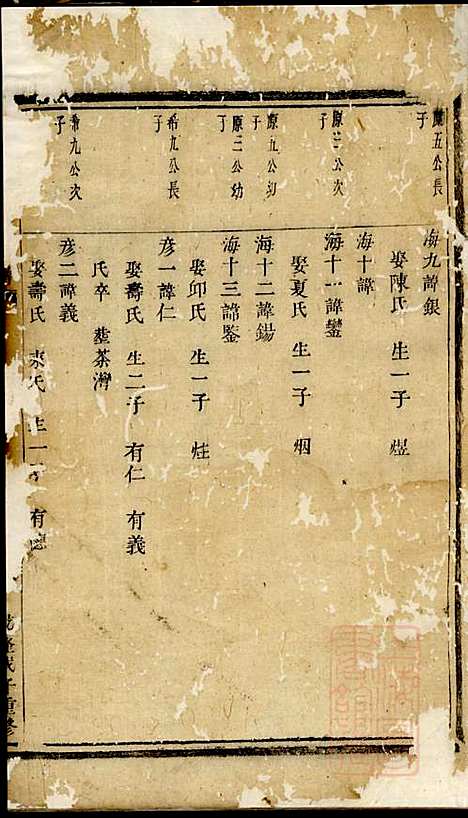 五公長子
海九諱銀
娶陳氏 生一子 煜
原三公次子
海十諱
海十一諱鑾
娶夏氏 生一子 烟
原五公幼子
海十二諱錫
原三公幼子
海十三諱鑒
娶邱氏 生一子 炷
希九公長子
彦一諱仁
娶壽氏 生二子 有仁 有義
氏卒 塟茶灣
希九公次子
彦二諱義
娶壽氏 氏 生一子 有